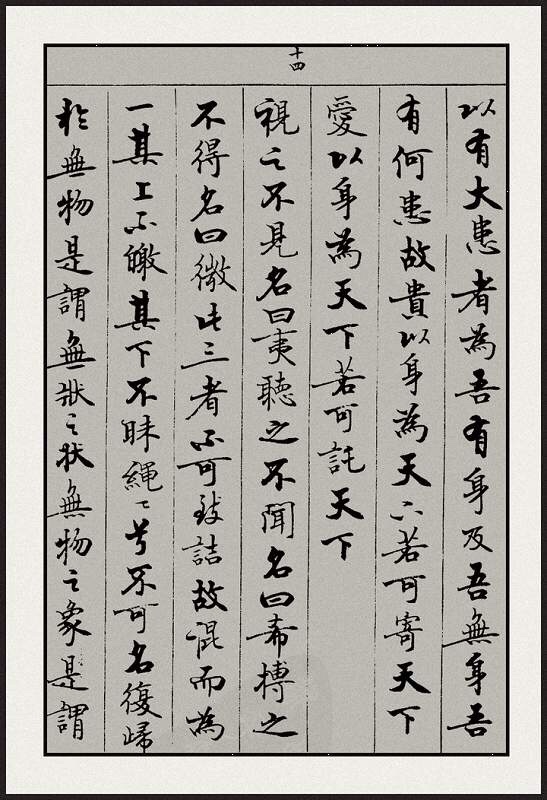 以有大患者為吾有身及吾無身吾
有何患故貴以身為天下若可寄天下
愛以身為天下若可託天下
十四
視之不見名曰夷聽之不聞名曰希搏之
不得名曰微此三者不可致詰故混而為
一其上不皦其下不昧繩〻兮不可名復歸
於無物是謂無狀之狀無物之象是謂